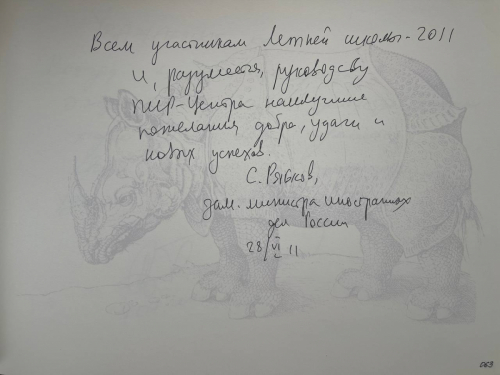 Всем участникам Летней школы-2011
и, разумеется, руководству
ПИР-Центра наилучшие
пожелания добра, удачи и
новых успехов.
С. Рябков,
зам. министра иностранных
дел России
28/VI 11
063